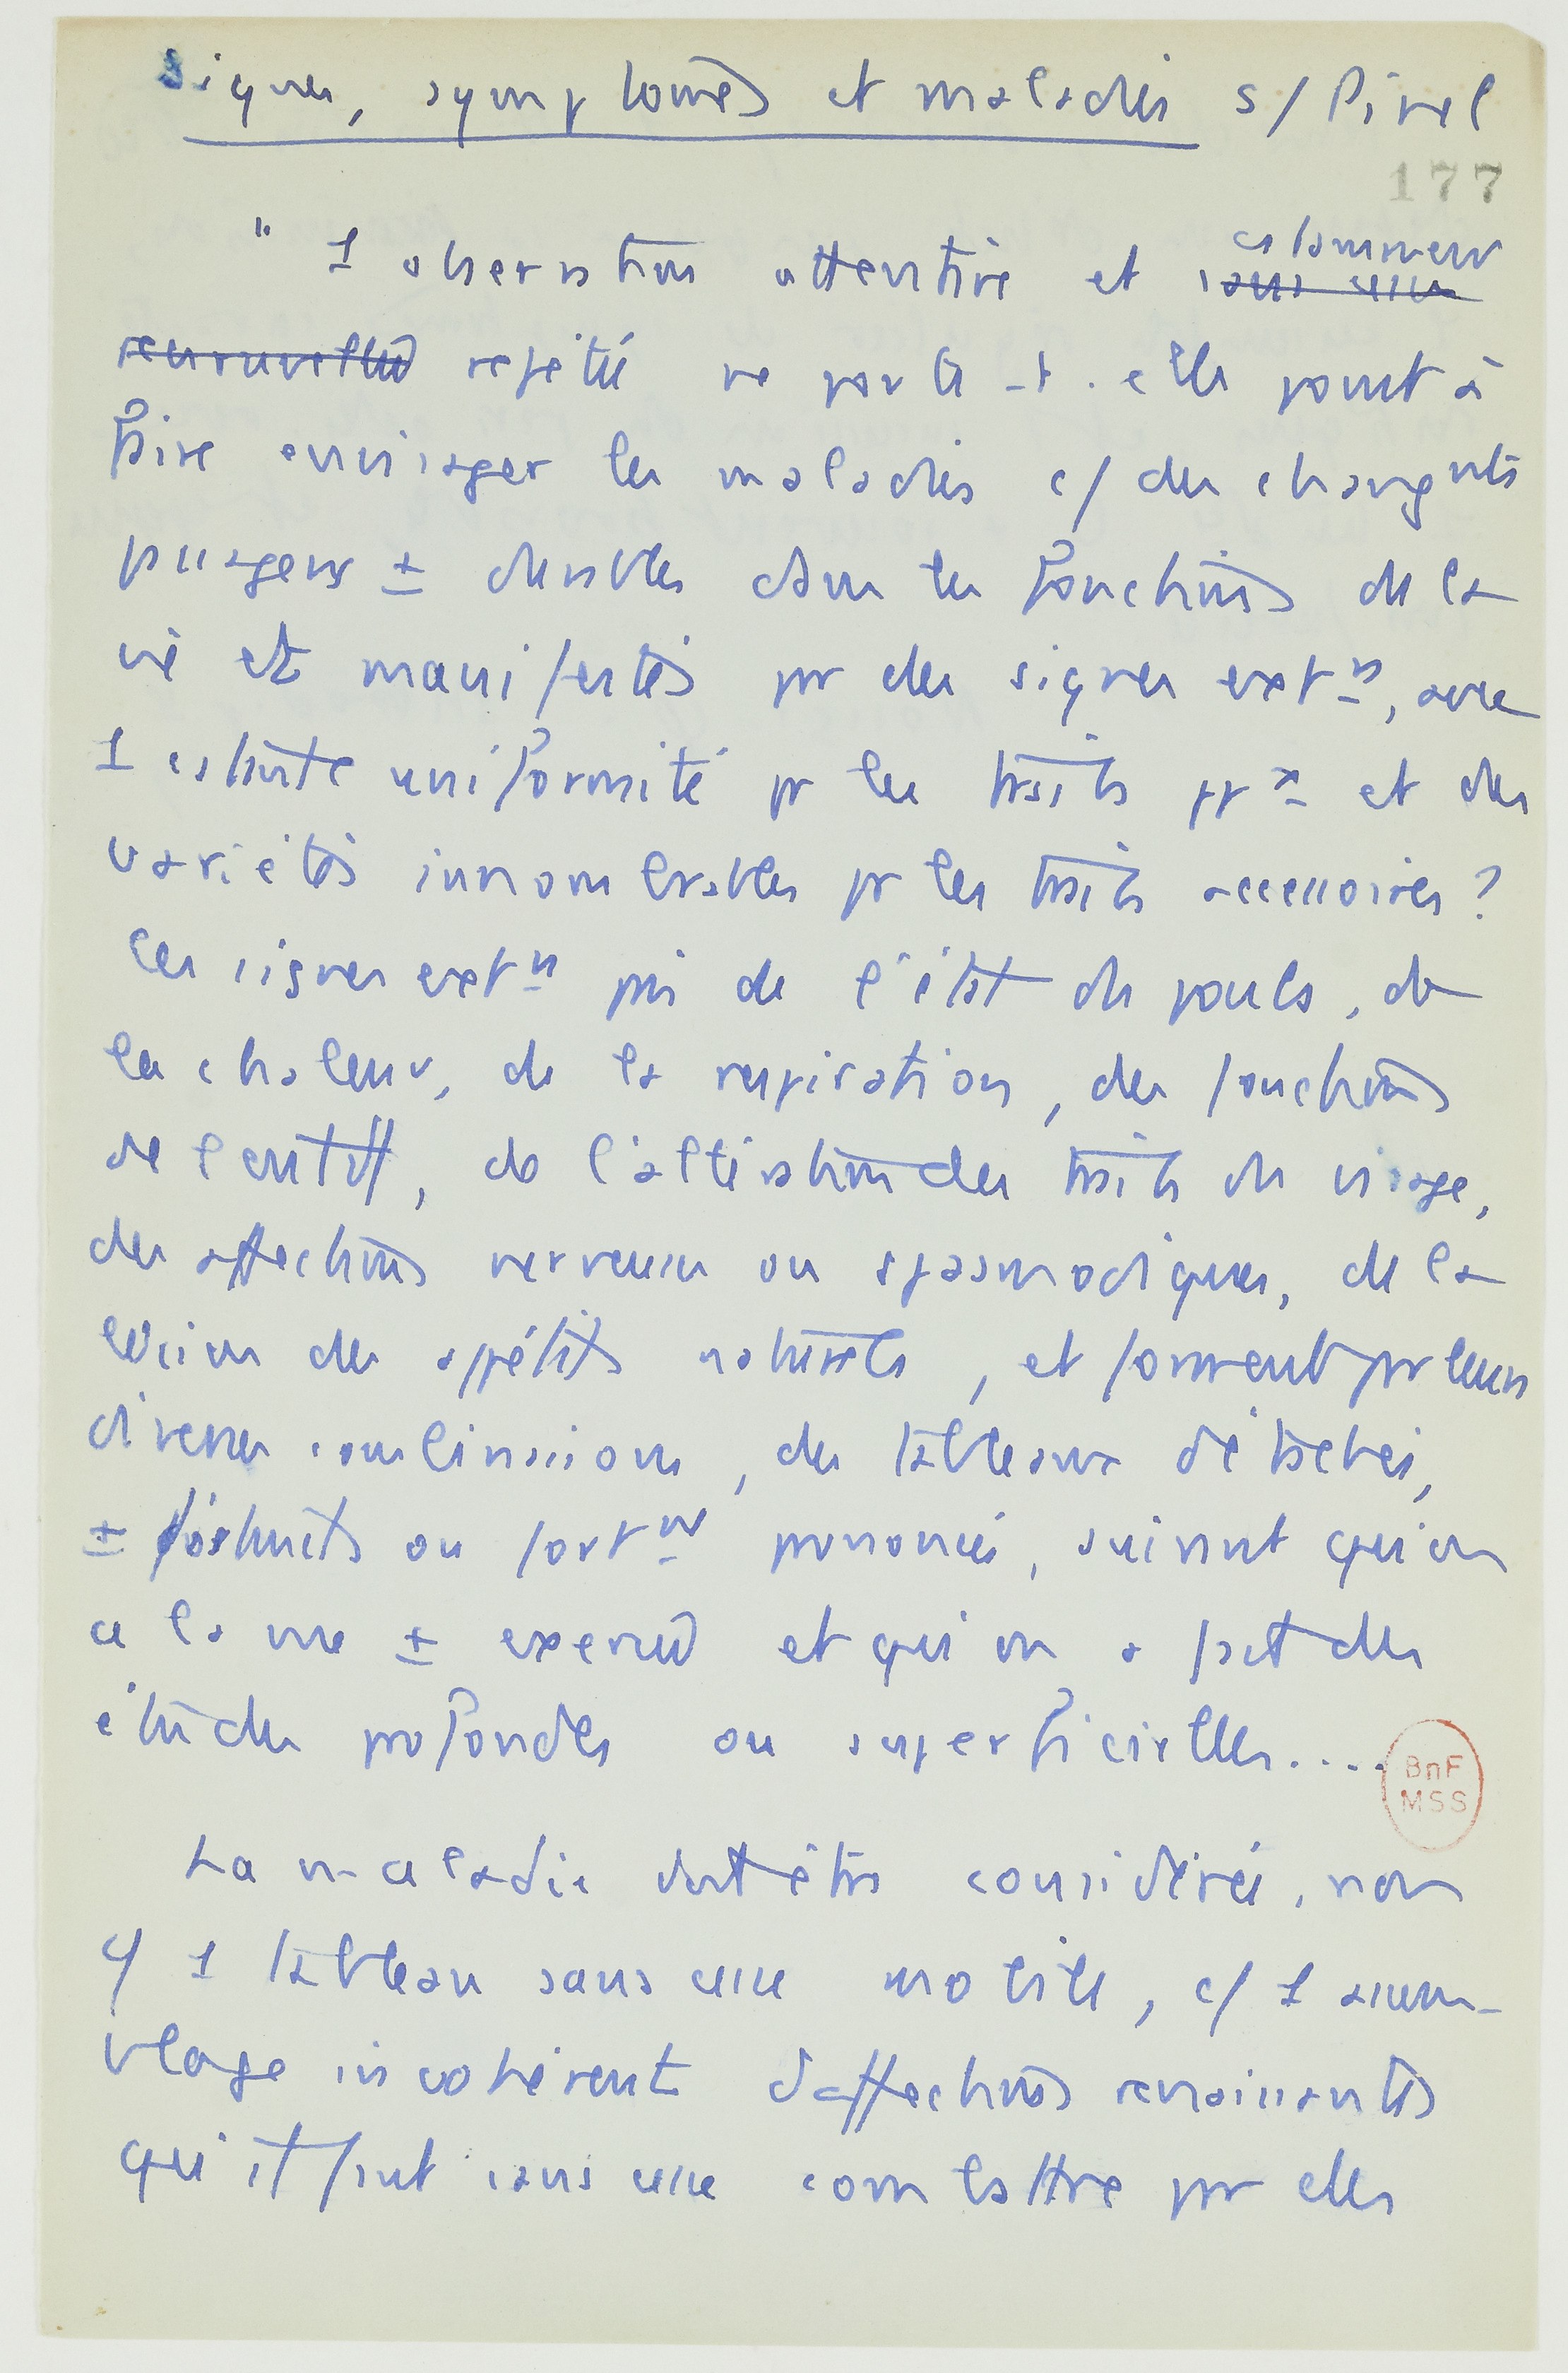 Signes, symptomes et maladies s/ Pinel
177
" 1 observation attentive et
constamment
sans cesse
renouvellée répétée ne porte-t-elle point à
faire envisager les maladies c/ des changmts
passagers ± durables dans les fonctions de la
vie et manifestés pr des signes extrs, avec
1 constante uniformité pr les traits ppx et des
variétés innombrables pr les traits accessoires ?
Ces signes extrs pris de l'état du pouls, de
la chaleur, de la respiration, des fonctions
de l'entdt, de l'altération des traits du visage,
des affections nerveuses ou spasmodiques, de la
lésion des appétits naturels, et forment pr leurs
diverses combinaisons, des tableaux détachés,
± distincts ou fortmt prononcés, suivant qu'on
a la vue ± exercée et qu'on a fait des
études profondes ou superficielles....
BnF
MSS
La maladie doit être considérée, non
c/ 1 tableau sans cesse mobile, c/ 1 assem-
blage incohérent d'affections renaissantes
qu'il faut sans cesse combattre pr des